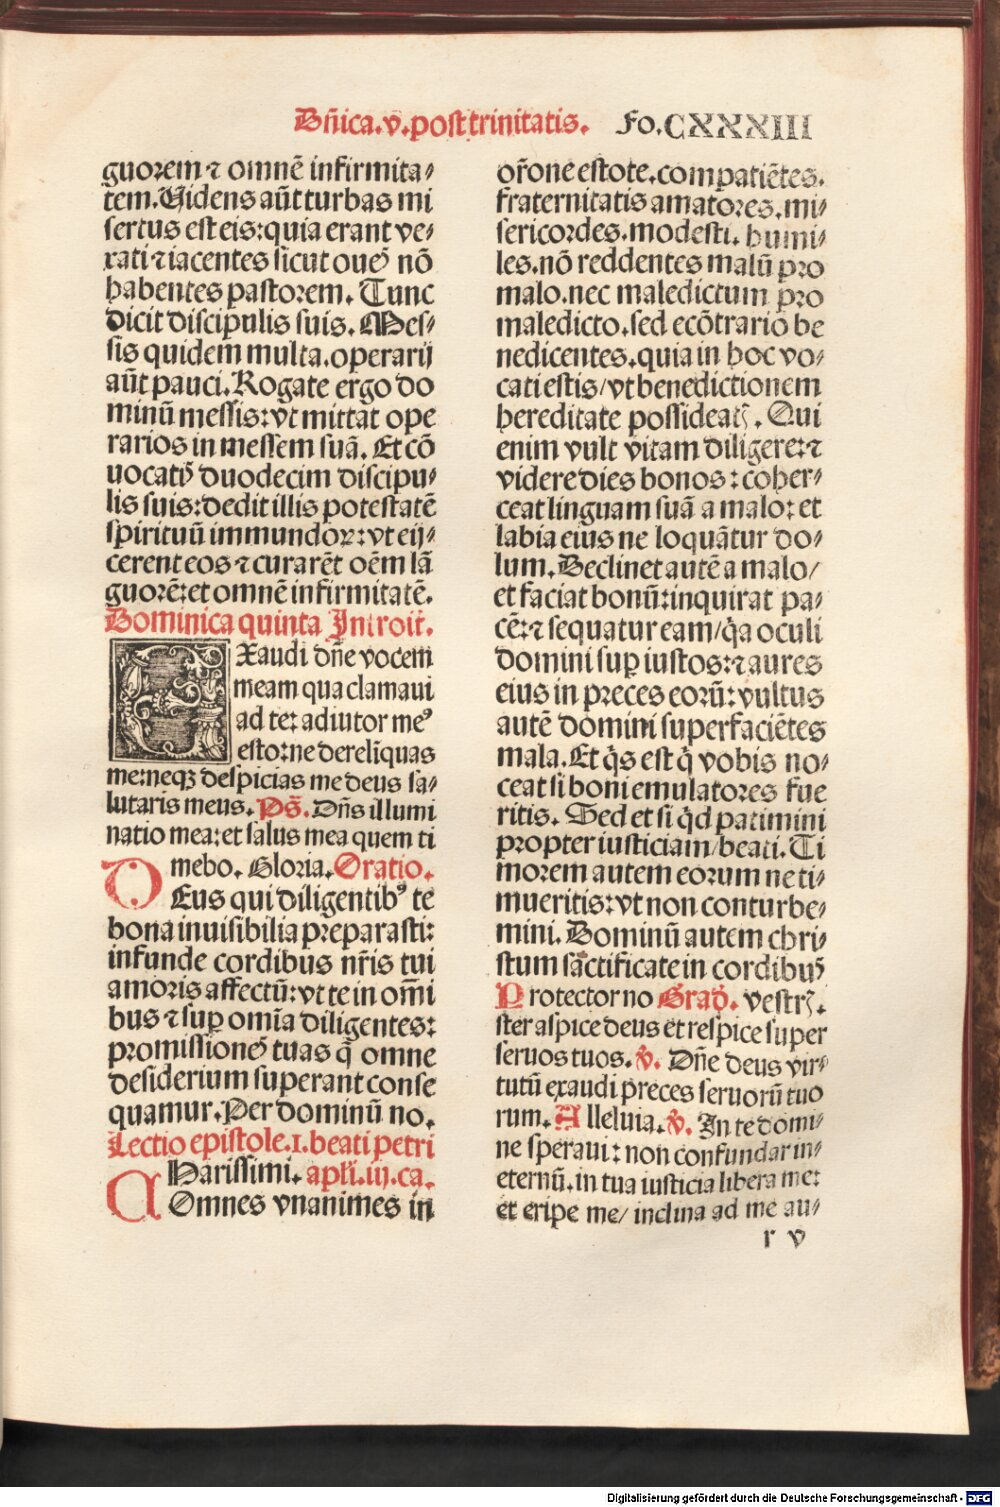 Dñica.v.post trinitatis. Fo.CXXXIII
guorem ⁊ omnē infirmita⸗
tem. Videns aūt turbas mi
sertus est eis: quia erant ve⸗
xati ⁊ iacentes sicut oueꝭ nō
habentes pastorem. Tunc
dicit discipulis suis. Mes⸗
sis quidem multa. operarij
aūt pauci. Rogate ergo do
minū messis: vt mittat ope
rarios in messem suā. Et cō
uocatꝭ duodecim discipu⸗
lis suis: dedit illis potestatē
spirituū immundoꝝ: vt eij⸗
cerent eos ⁊ curarēt oēm lā
guorē: et omnē infirmitatē.
Dominica quinta Introit.
EXaudi dñe vocem
meam qua clamaui
ad te: adiutor meꝰ
esto: ne derelīquas
me: neqꝫ despicias me deus sa⸗
lutaris meus. Ps̄. Dñs illumi
natio mea: et salus mea quem ti
mebo. Gloria. Oratio.
DEus qui diligentibꝰ te
bona inuisibilia preparasti:
infunde cordibus nr̄is tui
amoris affectū: vt te in om̄i
bus ⁊ suꝑ omīa diligentes:
promissioneꝭ tuas q̄ omne
desiderium superant conse
quamur. Per dominū no.
Lectio epistole.1.beati petri
CHarissimi. apl̄i.iij.ca.
Omnes vnanimes in
or̄one estote. compatiētes.
fraternitatis amatores. mi⸗
sericordes. modesti. humi⸗
les. nō reddentes malū pro
malo. nec maledictum pro
maledicto. sed ecōtrario be
nedicentes. quia in hoc vo⸗
cati estis/ vt benedictionem
hereditate possideatꝭ. Qui
enim vult vitam diligere: ⁊
videre dies bonos: coher⸗
ceat linguam suā a malo: et
labia eius ne loquātur do⸗
lum. Declinet autē a malo/
et faciat bonū: inquirat pa⸗
cē: ⁊ sequatur eam/ q̄a oculi
domini suꝑ iustos: ⁊ aures
eius in preces eorū: vultus
autē domini super faciētes
mala. Et q̄s est q̄ vobis no⸗
ceat si boni emulatores fue
ritis. Sed et si q̄d patimini
propter iusticiam/ beati. Ti
morem autem eorum ne ti⸗
mueritis: vt non conturbe⸗
mini. Dominū autem chri⸗
stum sāctificate in cordibuꝭ
Protector no Grad̄. vestrꝭ.
ster aspice deus et respice super
seruos tuos. v̄. Dñe deus vir⸗
tutū exaudi preces seruorū tuo
rum. Alleluia. v̄. In te domi⸗
ne speraui: non confundar in⸗
eternū. in tua iusticia libera me:
et eripe me/ inclina ad me au⸗
r v
Digitalisierung gefördert durch die Deutsche Forschungsgemeinschaft - DFG